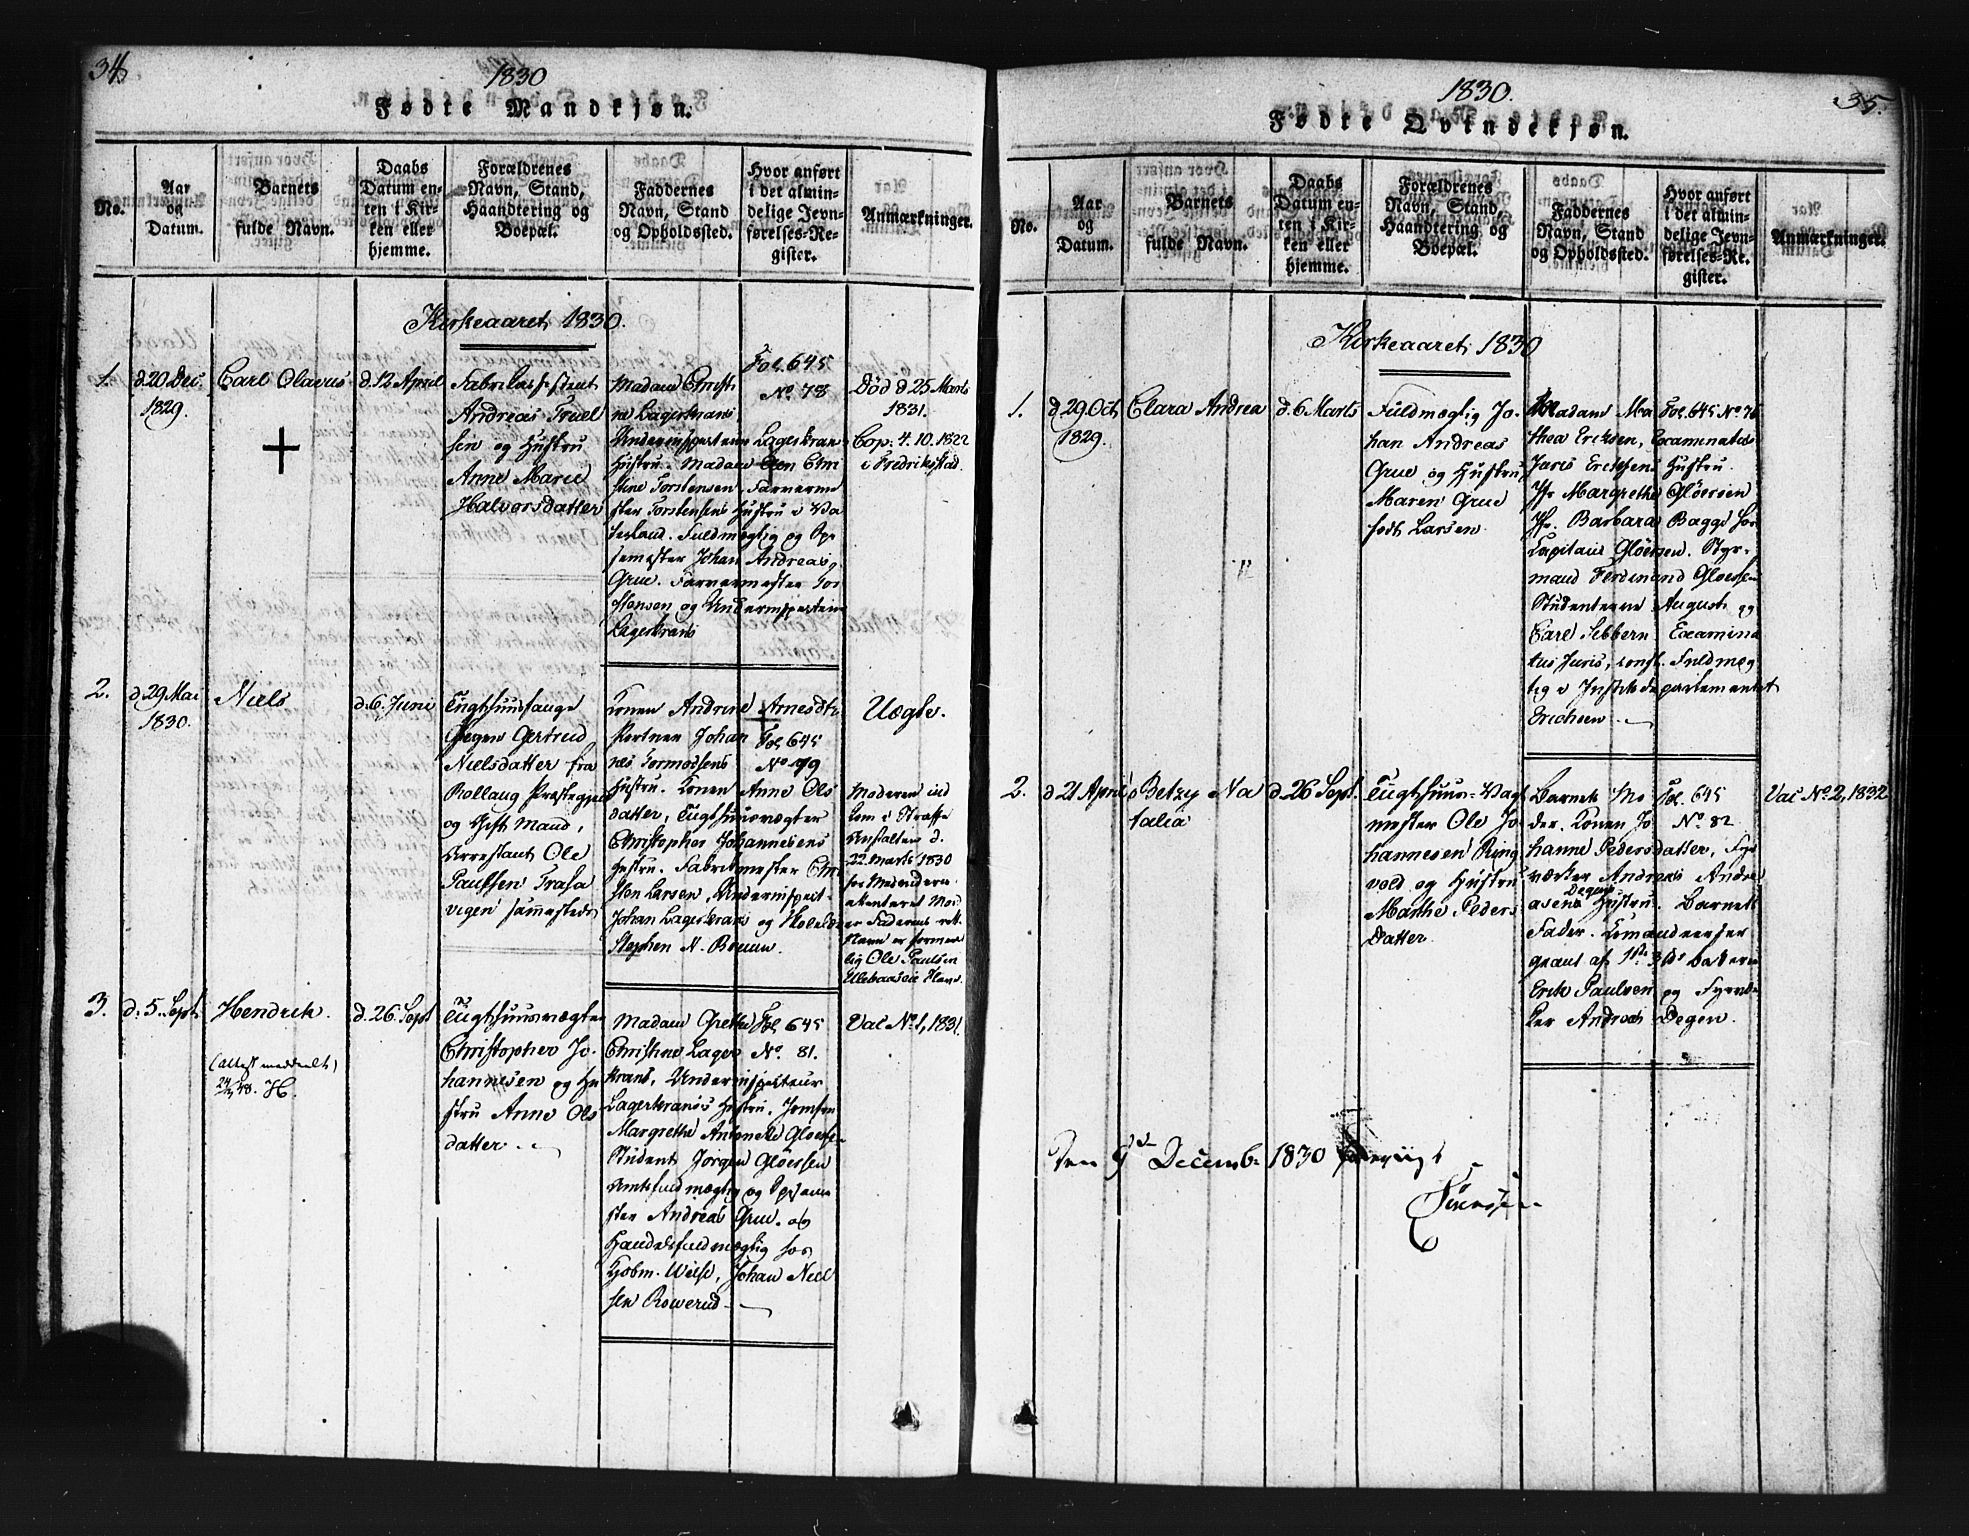 34
1830
Fødte Mandkjøn.
No.
Aar
og
Datum.
Barnets
fulde Navn.
Daabs
Datum en-
ten i Kir-
ken eller
hjemme.
Forældrenes
Navn, Stand,
Haandtering og
Boepæl.
Faddernes
Navn, Stand
og Opholdssted.
Hvor anført
i det almin-
delige Jevn-
førelses-Re-
gister.
Anmærkninger.
Kirkeaaret 1830.
1.
d. 20 Dec.
1829.
Carl Olavus
d. 12 April
Andreas Truel
sen og Hustru
Anne Marie
Halvorsdatter
Madam Christi
ne Lagerkrans
Underinspecteur Lagerkrans
Hustru. Madam Chri
stine Torstensen Farverme
ster Torstensens Hustru i Va
terland. Fuldmægtig og
Johan Andreas
Grue. Farvermester Tor
stensen og Underinspecteur
Lagerkrans
Fol. 645
No. 78
Død d 25 Marts
1831.
Cop. 4. 10. 1822
i Fredrikstad.
2.
d. 29 Mai
1830.
Niels
d. 6. Juni
Tugthuusfange
Pigen Gertrud
Nielsdatter fra
Rollaug Præstegjeld
og Gift Mand,
Arrestant Ole
Paulsen Trasa
vigen sammesteds
Konen Andrine Arnesdtr.
Portner Johan
nes Tormodsens
Hustru. Konen Anne Ols
datter, Tugthuusvægter
Christopher Johannesens
Hustru. Fabrikmester Chri
sten Larsen, Underinspect.
Johan Lagerkrans og
Stephen N.
Fol 645
No. 79
Uægte.
Moderen ind
kom i Straffe
Anstalten d.
22 Marts 1830
er Faderens rette
Navn er formen
lig Ole Paulsen
3.
d. 5. Sept.
Hendrik.
(attest meddeelt)
24/4 48. H.
d. 26. Sept
Tugthuusvægter
Christopher Jo-
hannesen og Hu
stru Anne Ols
datter.
Madam Grethe
Christine Lager
krans, Underinspecteur
Lagerkrans's Hustru. Jomfru
Margrethe Antonette Gloersen
Student Jørgen Gløersen
Amtsfuldmægtig og
Andreas Grue. og
Handelsfuldmægtig hos
Kjøbm. Wilse, Johan Niel
sen Rowerud
Fol. 645
No. 81.
Vac No. 1, 1831.
35.
1830.
Fødte Qvindekjøn.
No.
Aar
og
Datum.
Barnets
fulde Navn.
Daabs
Datum en-
ten i Kir-
ken eller
hjemme.
Forældrenes
Navn, Stand,
Haandtering og
Boepæl.
Faddernes
Navn, Stand
og Opholdssted.
Hvor anført
i det almin-
delige Jevn-
førelses-Re-
gister.
Anmærkninger.
Kirkeaaret 1830
1.
d. 29 Oct
1829.
Clara Andrea
d. 6 Marts
Fuldmægtig Jo-
han Andreas
Grue og Hustru
Maren Grue
født Larsen
Madam Ma
thea Ericksen, Examinatus
Juris Ericksens Hustru.
Jfr Margrethe Glöersen
Jfr. Barbara Bagge hos
Capitain Glöersen. Styr-
mand Ferdinand Gloersen
Studenterne August og
Carl Sibbern. Examina
tus Juris, const. Fuldmæg
tig i Justitsdepartementet
Ericksen.
Fol. 645 No. 76
2.
d 21 April
Betzy Na
talia
d. 26 Sept.
Tugthuus-Vagt
mester Ole Jo
hannesen Ring
vold og Hustru
Marthe Peders
Datter
Barnets Mo
der. Konen Jo
hanne Pedersdatter, Fyr
værker Andreas Andre
asens Degens Hustru. Barnets
Fader. Comandeersær
geant af
Erik Paulsen og Fyrvær
ker Andreas Degen.
Fol. 645
No. 82
Vac No. 2, 1832
Den 9de Decemb: 1830